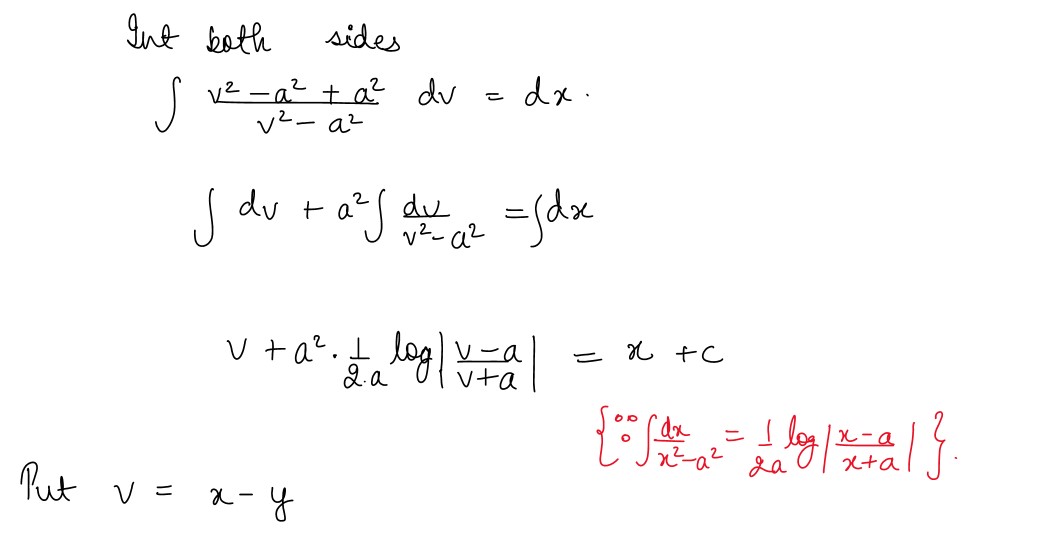 Int both sides
∫ (v² – a² + a²)/(v² – a²) dv = dx.
∫ dv + a² ∫ dv/(v² – a²) = ∫ dx
v + a² · 1/(2.a) log |(v – a)/(v + a)| = x + c
{∵ ∫ dx/(x² – a²) = 1/(2a) log |(x – a)/(x + a)| }.
Put v = x – y